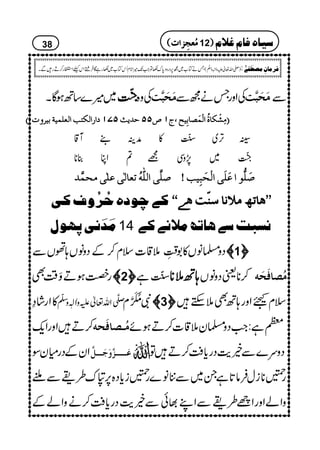 سیاہ فام غلام (12 مُعجزات)
38
فرمانِ مصطفٰے
سے مَحَبَّت کی اور جس نے مجھ سے مَحَبَّت کی وہ جنّت میں میرے ساتھ ہو گا۔
(مِشْکاۃُ الْمَصابِیح ج۱ ص۵۵ حدیث ۱۷۵ دارالکتب العلمیۃ بیروت)
سینہ تری سنّت کا مدینہ بنے آقا
جنّت میں پڑوسی مجھے تم اپنا بنانا
صَلُّوا عَلَی الْحَبِیب ! صلَّی اللہُ تعالٰی علٰی محمَّد
”ہاتھ ملانا سنّت ہے“ کے چودہ حُرُوف کی
نسبت سے ہاتھ ملانے کے 14 مَدَنی پھول
﴿1﴾ دو مسلمانوں کا بوقتِ ملاقات سلام کر کے دونوں ہاتھوں سے
مُصافَحَہ کرنا یعنی دونوں ہاتھ ملانا سنّت ہے ﴿2﴾ رخصت ہوتے وَقت بھی
سلام کیجئے اور ہاتھ بھی ملا سکتے ہیں ﴿3﴾ نبیِّ مُکَرَّم صلی اللہ تعالیٰ علیہ والہ وسلم کا ارشادِ
معظم ہے: جب دو مسلمان ملاقات کرتے ہوئے مُصافَحہ کرتے ہیں اور ایک
دوسرے سے خیریت دریافت کرتے ہیں تو اللہ عَزَّوَجَلَّ ان کے درمیان سو
رحمتیں نازل فرماتا ہے جن میں سے ننانوے رحمتیں زیادہ پرتپاک طریقے سے ملنے
والے اور اچھے طریقے سے اپنے بھائی سے خیریت دریافت کرنے والے کے